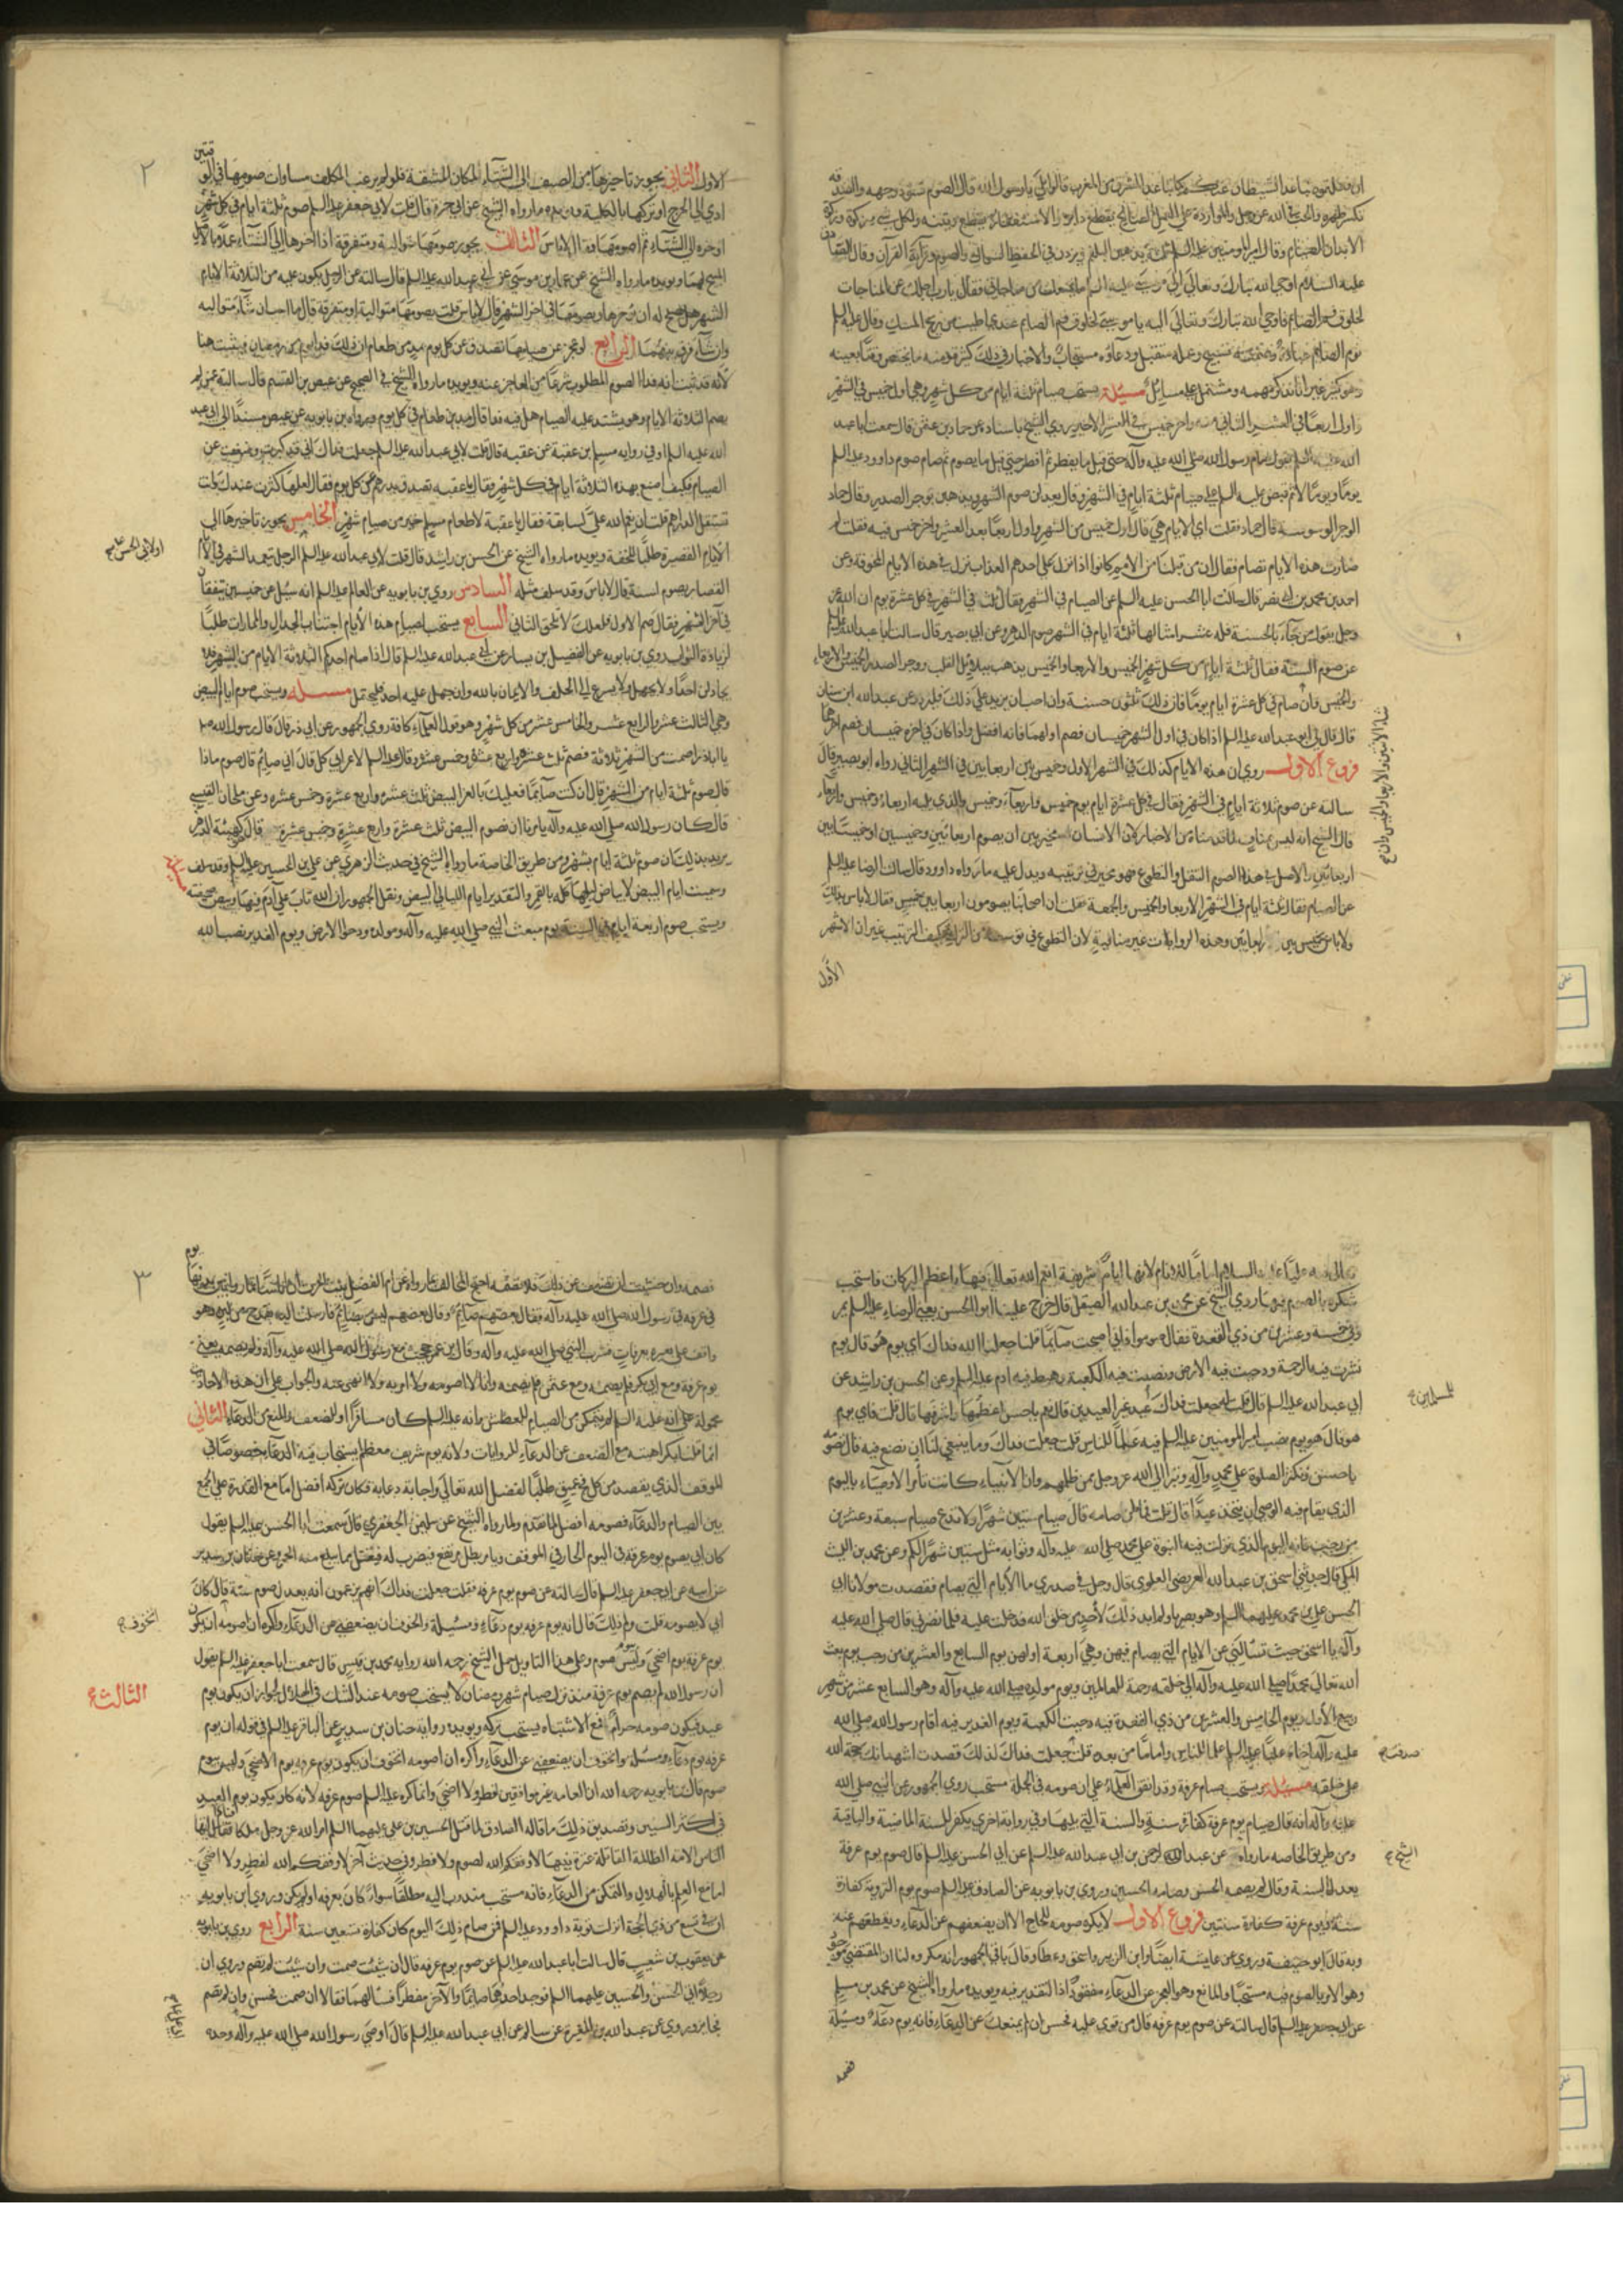 ان فعلتموه تباعد الشيطان عنكم كما تباعد المشرق من المغرب قالوا بلى يا رسول الله قال الصوم تسود وجهه والصدقه
تكسر ظهره والحب في الله عز وجل والموازرة على العمل الصالح يقطع دابره والاستغفار يقطع وتينه ولكل شيء زكوة وزكوة
الابدان الصيام وقال امير المومنين عليه السلم ثلثة يذهبن البلغم ويزدن في الحفظ السواك والصوم وقرآءة القرآن وقال الصادق
عليه السلام اوحى الله تبارك وتعالى الى موسى عليه السلم ما يمنعك من مناجاتي فقال يا رب اجلك عن المناجات
لخلوف فم الصائم فاوحى الله تبارك وتعالى اليه يا موسى لخلوف فم الصائم عندي اطيب من ريح المسك وقال عليه السلم
نوم الصائم عبادة وصمته تسبيح وعمله متقبل ودعاؤه مستجاب والاخبار في ذلك كثيرة ومنه ما يختص وقتا بعينه
وهو كثير غير انا نذكر مهمه ويشتمل على مسائل مسئلة يستحب صيام ثلثة ايام من كل شهر وهي اول خميس في الشهر
واول اربعا في العشر الثاني منه واخر خميس في العشر الاخير روى الشيخ باسناده عن حماد بن عثمن قال سمعت ابا عبد
الله عليه السلم يقول صام رسول الله صلى الله عليه وآله حتى قيل ما يفطر ثم افطر حتى قيل ما يصوم ثم صام صوم داوود عليه السلم
يوما ويوما لا ثم قبض عليه السلم على صيام ثلثة ايام في الشهر وقال يعدلن صوم الشهر ويذهبن بوحر الصدر وقال حماد
الوحر الوسوسة قال حماد فقلت اي الايام هي قال اول خميس من الشهر واول اربعا بعد العشر واخر خميس فيه فقلت لم
صارت هذه الايام تصام فقال ان من قبلنا من الامم كانوا اذا نزل على احدهم العذاب نزل في هذه الايام المخوفة وعن
احمد بن محمد بن ابي نصر قال سالت ابا الحسن عليه السلم عن الصيام في الشهر فقال ثلث في الشهر في كل عشرة يوم ان الله عز
وجل يقول من جآء بالحسنة فله عشر امثالها ثلثة ايام في الشهر صوم الدهر وعن ابي بصير قال سالت ابا عبد الله عليه السلم
عن صوم السنة فقال ثلثة ايام من كل شهر الخميس والاربعا والخميس يذهب ببلابل القلب ووحر الصدر الخميس والاربعاء
والخميس فان صام في كل عشرة ايام يوما فان ذلك ثلثون حسنة وان احب ان يزيد على ذلك فليزد وعن عبد الله ابن سنان
قال قال لي ابو عبد الله عليه السلم اذا كان في اول الشهر خميسان فصم اولهما فانه افضل واذا كان في اخره خميسان فصم اخرهما
فروع الاول روى ان هذه الايام كذلك في الشهر الاول وخميس بين اربعايين في الشهر الثاني رواه ابو بصير قال
سالته عن صوم ثلاثة ايام في الشهر فقال في كل عشرة ايام يوم خميس واربعآء وخميس والذي يليه اربعاء وخميس واربعاء
قال الشيخ انه ليس بمناف لما قدمناه من الاخبار لان الانسان مخير بين ان يصوم اربعائين وخميسين او خميسا بين
اربعائين والاصل في هذا الصوم التنفل والتطوع فهو مخير في ترتيبه ويدل عليه ما رواه داوود قال سالت الرضا عليه السلم
عن الصيام فقال ثلثة ايام في الشهر الاربعا والخميس والجمعة فقلت ان اصحابنا يصومون اربعا بين خميسين فقال لا باس بذلك
ولا باس بخميس بين اربعايين وهذه الروايات غير منافية لان التطوع في توسعة والزايد كيف الترتيب غير ان الاشهر
الاول
٢
الاول الثاني يجوز تاخيرها من الصيف الى الشتآء لمكان المشقة فلو لم يرغب المكلف مساوات صومها في الوقتين
ادى الى الحرج او تركها بالكلية ويؤيده ما رواه الشيخ عن ابي حمزة قال قلت لابي جعفر عليه السلم صوم ثلثة ايام في كل شهر
اوخره الى الشتآء ثم اصومها فقال لا باس الثالث يجوز صومها متوالية ومتفرقة اذا اخرها الى الشتآء عملا بالاصل
المبيح لهما ويؤيده ما رواه الشيخ عن عمار بن موسى عن ابي عبد الله عليه السلم قال سالته عن الرجل يكون عليه من الثلاثة الايام
الشهر هل يصلح له ان يؤخرها ويصومها في اخر الشهر قال لا باس قلت يصومها متوالية او متفرقة قال ما احب ان شآء متوالية
وان شآء فرق بينهما الرابع لو عجز عن صيامها تصدق عن كل يوم بمد من طعام لان ذلك فدا يوم من رمضان فيثبت هنا
لانه قد ثبت انه فدا الصوم المطلوب شرعا من العاجز عنه ويؤيده ما رواه الشيخ في الصحيح عن عيص بن القسم قال سالته عمن لم
يصم الثلاثة الايام وهو يشتد عليه الصيام هل فيه فدا قال مد من طعام في كل يوم ورواه بن بابويه عن عيص مسندا الى ابي عبد
الله عليه السلم وفي رواية مسلم بن عقبة عن عقبة قال قلت لابي عبد الله عليه السلم جعلت فداك اني قد كبرت وضعفت عن
الصيام فكيف اصنع بهذه الثلاثة ايام في كل شهر فقال يا عقبه تصدق بدرهم عن كل يوم فقال لعلها كثرت عندك وانت
تستقل الدرهم قلت ان نعم الله علي لسابقة فقال يا عقبة لاطعام مسلم خير من صيام شهر الخامس يجوز تاخيرها الى
الايام القصيرة طلبا للخفة ويؤيده ما رواه الشيخ عن الحسن بن راشد قال قلت لابي عبد الله عليه السلم الرجل يتعمد الشهر في الايام
القصار يصوم لسنة قال لا باس وقد سلف مثله السادس روى بن بابويه عن العالم عليه السلم انه سئل عن خميسين يتفقان
في آخر الشهر فقال صم الاول فلعلك لا تلحق الثاني السابع يستحب لصيام هذه الايام اجتناب الجدال والممارات طلبا
لزيادة الثواب روى بن بابويه عن الفضيل بن يسار عن ابي عبد الله عليه السلم قال اذا صام احدكم الثلاثة الايام من الشهر فلا
يجادلن احدا ولا يجهل ولا يسرع الى الحلف والايمان بالله وان جهل عليه احد فليحتمل مسئله ويستحب صوم ايام البيض
وهي الثالث عشر والرابع عشر والخامس عشر من كل شهر وهو قول العلمآء كافة روى الجمهور عن ابي ذر قال قال رسول الله صلى
يا اباذر اذا صمت من الشهر ثلاثة فصم ثلث عشر واربع عشر وخمس عشر وقال عليه السلم لاعرابي كل قال اني صائم قال صوم ماذا
قال صوم ثلثة ايام من الشهر قال ان كنت صآئما فعليك بالغر البيض ثلث عشره واربع عشرة وخمس عشره وعن ملحان القيسي
قال كان رسول الله صلى الله عليه وآله يامرنا ان نصوم البيض ثلث عشرة واربع عشرة وخمس عشرة قال هو كهيئة الدهر
يريد بذلك ان صوم ثلثة ايام بشهر ومن طريق الخاصة ما رواه الشيخ في حديث الزهري عن علي بن الحسين عليه السلم وقد سلف
وسميت ايام البيض لابياض ليلها كله بالقمر والتقدير ايام الليالي البيض ونقل الجمهور ان الله تاب على آدم فيها وبيض صحيفته
ويستحب صوم اربعة ايام في السنة يوم مبعث النبي صلى الله عليه وآله ومولده ودحو الارض ويوم الغدير نصب الله
تعالى فيه عليا عليه السلام اماما للانام لانها ايام شريفة انعم الله تعالى فيها باعظم البركات فاستحب
شكره بالصوم فيها روى الشيخ عن محمد بن عبد الله الصيقل قال خرج علينا ابو الحسن يعني الرضاء عليه السلم بمر
وفي خمسة وعشرين من ذي القعدة فقال صوموا فاني اصبحت صآئما قلنا جعلنا الله فداك اي يوم هو قال يوم
نشرت فيه الرحمة ودحيت فيه الارض ونصبت فيه الكعبة وهبط فيه ادم عليه السلم وعن الحسن بن راشد عن
ابي عبد الله عليه السلم قال قلت له جعلت فداك عيد غير العيدين قال نعم يا حسن اعظمها واشرفها قال قلت فاي يوم
هو قال هو يوم نصب امير المومنين عليه السلم فيه علما للناس قلت جعلت فداك وما ينبغي لنا ان نصنع فيه قال تصومه
يا حسن وتكثر الصلوة على محمد وآله وتبرا الى الله عز وجل ممن ظلمهم وان الانبياء كانت تامر الاوصياء باليوم
الذي يقام فيه الوصي ان يتخذ عيدا قال قلت فما لمن صامه قال صيام ستين شهرا ولا تدع صيام سبعة وعشرين
من رجب فانه اليوم الذي نزلت فيه النبوة على محمد صلى الله عليه وآله وثوابه مثل ستين شهرا لكم وعن محمد بن الليث
المكي قال حدثني اسحق بن عبد الله العريضي العلوي قال وحل في صدري ما الايام التي يصام فقصدت مولانا ابي
الحسن علي بن محمد عليهما السلم وهو بصريا ولم ابد ذلك لاحد من خلق الله فدخلت عليه فلما نصرني قال صلى الله عليه
وآله يا اسحق جيت تسالني عن الايام التي يصام فيهن وهي اربعة اولهن يوم السابع والعشرين من رجب يوم بعث
الله تعالى محمدا صلى الله عليه وآله الى خلقه رحمة للعالمين ويوم مولده صلى الله عليه وآله وهو السابع عشر من شهر
ربيع الأول ويوم الخامس والعشرين من ذي القعدة فيه دحيت الكعبة ويوم الغدير فيه اقام رسول الله صلى الله
عليه وآله اخاه عليا عليه السلم علما للناس واماما من بعده قلت جعلت فداك لذلك قصدت اشهد انك حجة الله
على خلقه مسئلة ويستحب صيام عرفة وقد اتفق العلماء على ان صومه في الجملة مستحب روى الجمهور عن النبي صلى الله
عليه وآله انه قال صيام يوم عرفة كفارة سنة والسنة التي يليها وفي رواية اخرى يكفر السنة الماضية والباقية
ومن طريق الخاصه ما رواه عن عبد الرحمن بن ابي عبد الله عليه السلم عن ابي الحسن عليه السلم قال صوم يوم عرفة
يعدل السنة وقال لم يصمه الحسن وصامه الحسين وروى بن بابويه عن الصادق عليه السلم صوم يوم التروية كفارة
سنة ويوم عرفة كفارة سنتين فروع الاول لا يكره صومه للحاج الا ان يضعفهم عن الدعآء ويقطعهم عنه
وبه قال ابو حنيفة وروي عن عايشة ايضا وابن الزبير واسحق وعطا وقال باقي الجمهور انه مكروه لنا ان المقتضي موجود
وهو الامر بالصوم فيه مستحبا والمانع وهو العجز عن الدعآء مفقود اذ التقدير فيه ويؤيده ما رواه الشيخ عن محمد بن مسلم
عن ابي جعفر عليه السلم قال سالته عن صوم يوم عرفه قال من قوي عليه فحسن ان لم يمنعك عن الدعآء فانه يوم دعآء ومسئلة
فصمه
للمسلمين
الشيخ
٣
فصمه وان خشيت ان تضعف عن ذلك فلا تصمه احتج المخالف بما رواه عن ام الفضل بنت الحرث ان اناسا تماروا بين يديها يوم
في عرفه في رسول الله صلى الله عليه وآله فقال بعضهم صآئم وقال بعضهم ليس بصائم فارسلت اليه بقدح من لبن وهو
واقف على بعيره بعرفات فشرب النبي صلى الله عليه وآله وقال بن عمر حججت مع رسول الله صلى الله عليه وآله ولم يصمه يعني
يوم عرفة ومع ابي بكر فلم يصمه ومع عثمن فلم يصمه وانا لا اصومه ولا امر به ولا انهى عنه والجواب على ان هذه الاحاديث
محمولة على انه عليه السلم لم يتمكن من الصيام للعطش او انه عليه السلم كان مسافرا او للضعف والمنع من الدعآء الثاني
انما قلنا بكراهته مع الضعف عن الدعآء للروايات ولانه يوم شريف معظم يستجاب فيه الدعآء خصوصا في
الموقف الذي يقصد من كل فج عميق طلبا لفضل الله تعالى واجابة دعايه فكان تركه افضل اما مع القدرة على الجمع
بين الصيام والدعآء فصومه افضل لما تقدم ولما رواه الشيخ عن سليمن الجعفري قال سمعت ابا الحسن عليه السلم يقول
كان ابي يصوم يوم عرفة في اليوم الحار في الموقف ويامر بظل مرتفع فيضرب له فيغتسل مما يبلغ منه الحر وعن حنان بن سدير
عن ابيه عن ابي جعفر عليه السلم قال سالته عن صوم يوم عرفه فقلت جعلت فداك انهم يزعمون انه يعدل صوم سنة قال كان
ابي لا يصومه قلت ولم ذلك قال انه يوم عرفه يوم دعآء ومسئلة واتخوف ان يضعفني عن الدعآء واكره ان اصومه ان يكون
يوم عرفة يوم اضحى وليس يوم صوم وعلى هذا التاويل حمل الشيخ رحمه الله رواية محمد بن قيس قال سمعت ابا جعفر عليه السلم يقول
ان رسول الله لم يصم يوم عرفة منذ نزل صيام شهر رمضان لا يستحب صومه عند الشك في الهلال لجواز ان يكون يوم
عيد فيكون صومه حراما فمع الاشتباه يستحب تركه ويؤيده رواية حنان بن سدير عن الباقر عليه السلم في قوله ان يوم
عرفه يوم دعآء ومسئلة واتخوف ان يضعفني عن الدعآء واكره ان اصومه اتخوف ان يكون يوم عرفه يوم الاضحى وليس بيوم
صوم قال بن بابويه رحمه الله ان العامه غير موافقين لفطر ولا اضحى وانما كره عليه السلم صوم عرفه لانه كان يكون يوم العيد
في اكثر السنين وتصديق ذلك ما قاله الصادق لما قتل الحسين بن علي عليهما السلم امر الله عز وجل ملكا فنادى ايتها
الناس الامة الظالمة القاتلة عترة نبيها لا وفقكم الله لصوم ولا فطر وفي حديث آخر لا وفقكم الله لفطر ولا اضحى
اما مع العلم بالهلال والتمكن من الدعآء فانه مستحب مندوب اليه مطلقا سواء كان بعرفه او لم يكن وروى ابن بابويه
ان في تسع من ذي الحجة انزلت توبة داوود عليه السلم فمن صام ذلك اليوم كان كفارة تسعين سنة الرابع روى بن بابويه
عن يعقوب بن شعيب قال سالت ابا عبد الله عليه السلم عن صوم يوم عرفه قال ان شئت صمت وان شئت لم تصم وروي ان
رجلا اتى الحسن والحسين عليهما السلم فوجد احدهما صائما والآخر مفطرا فسالهما فقالا ان صمت فحسن وان لم تصم
فجايز وروي عن عبد الله بن المغيرة عن سالم عن ابي عبد الله عليه السلم قال اوصى رسول الله صلى الله عليه وآله وحده
اتخوف
الثالث